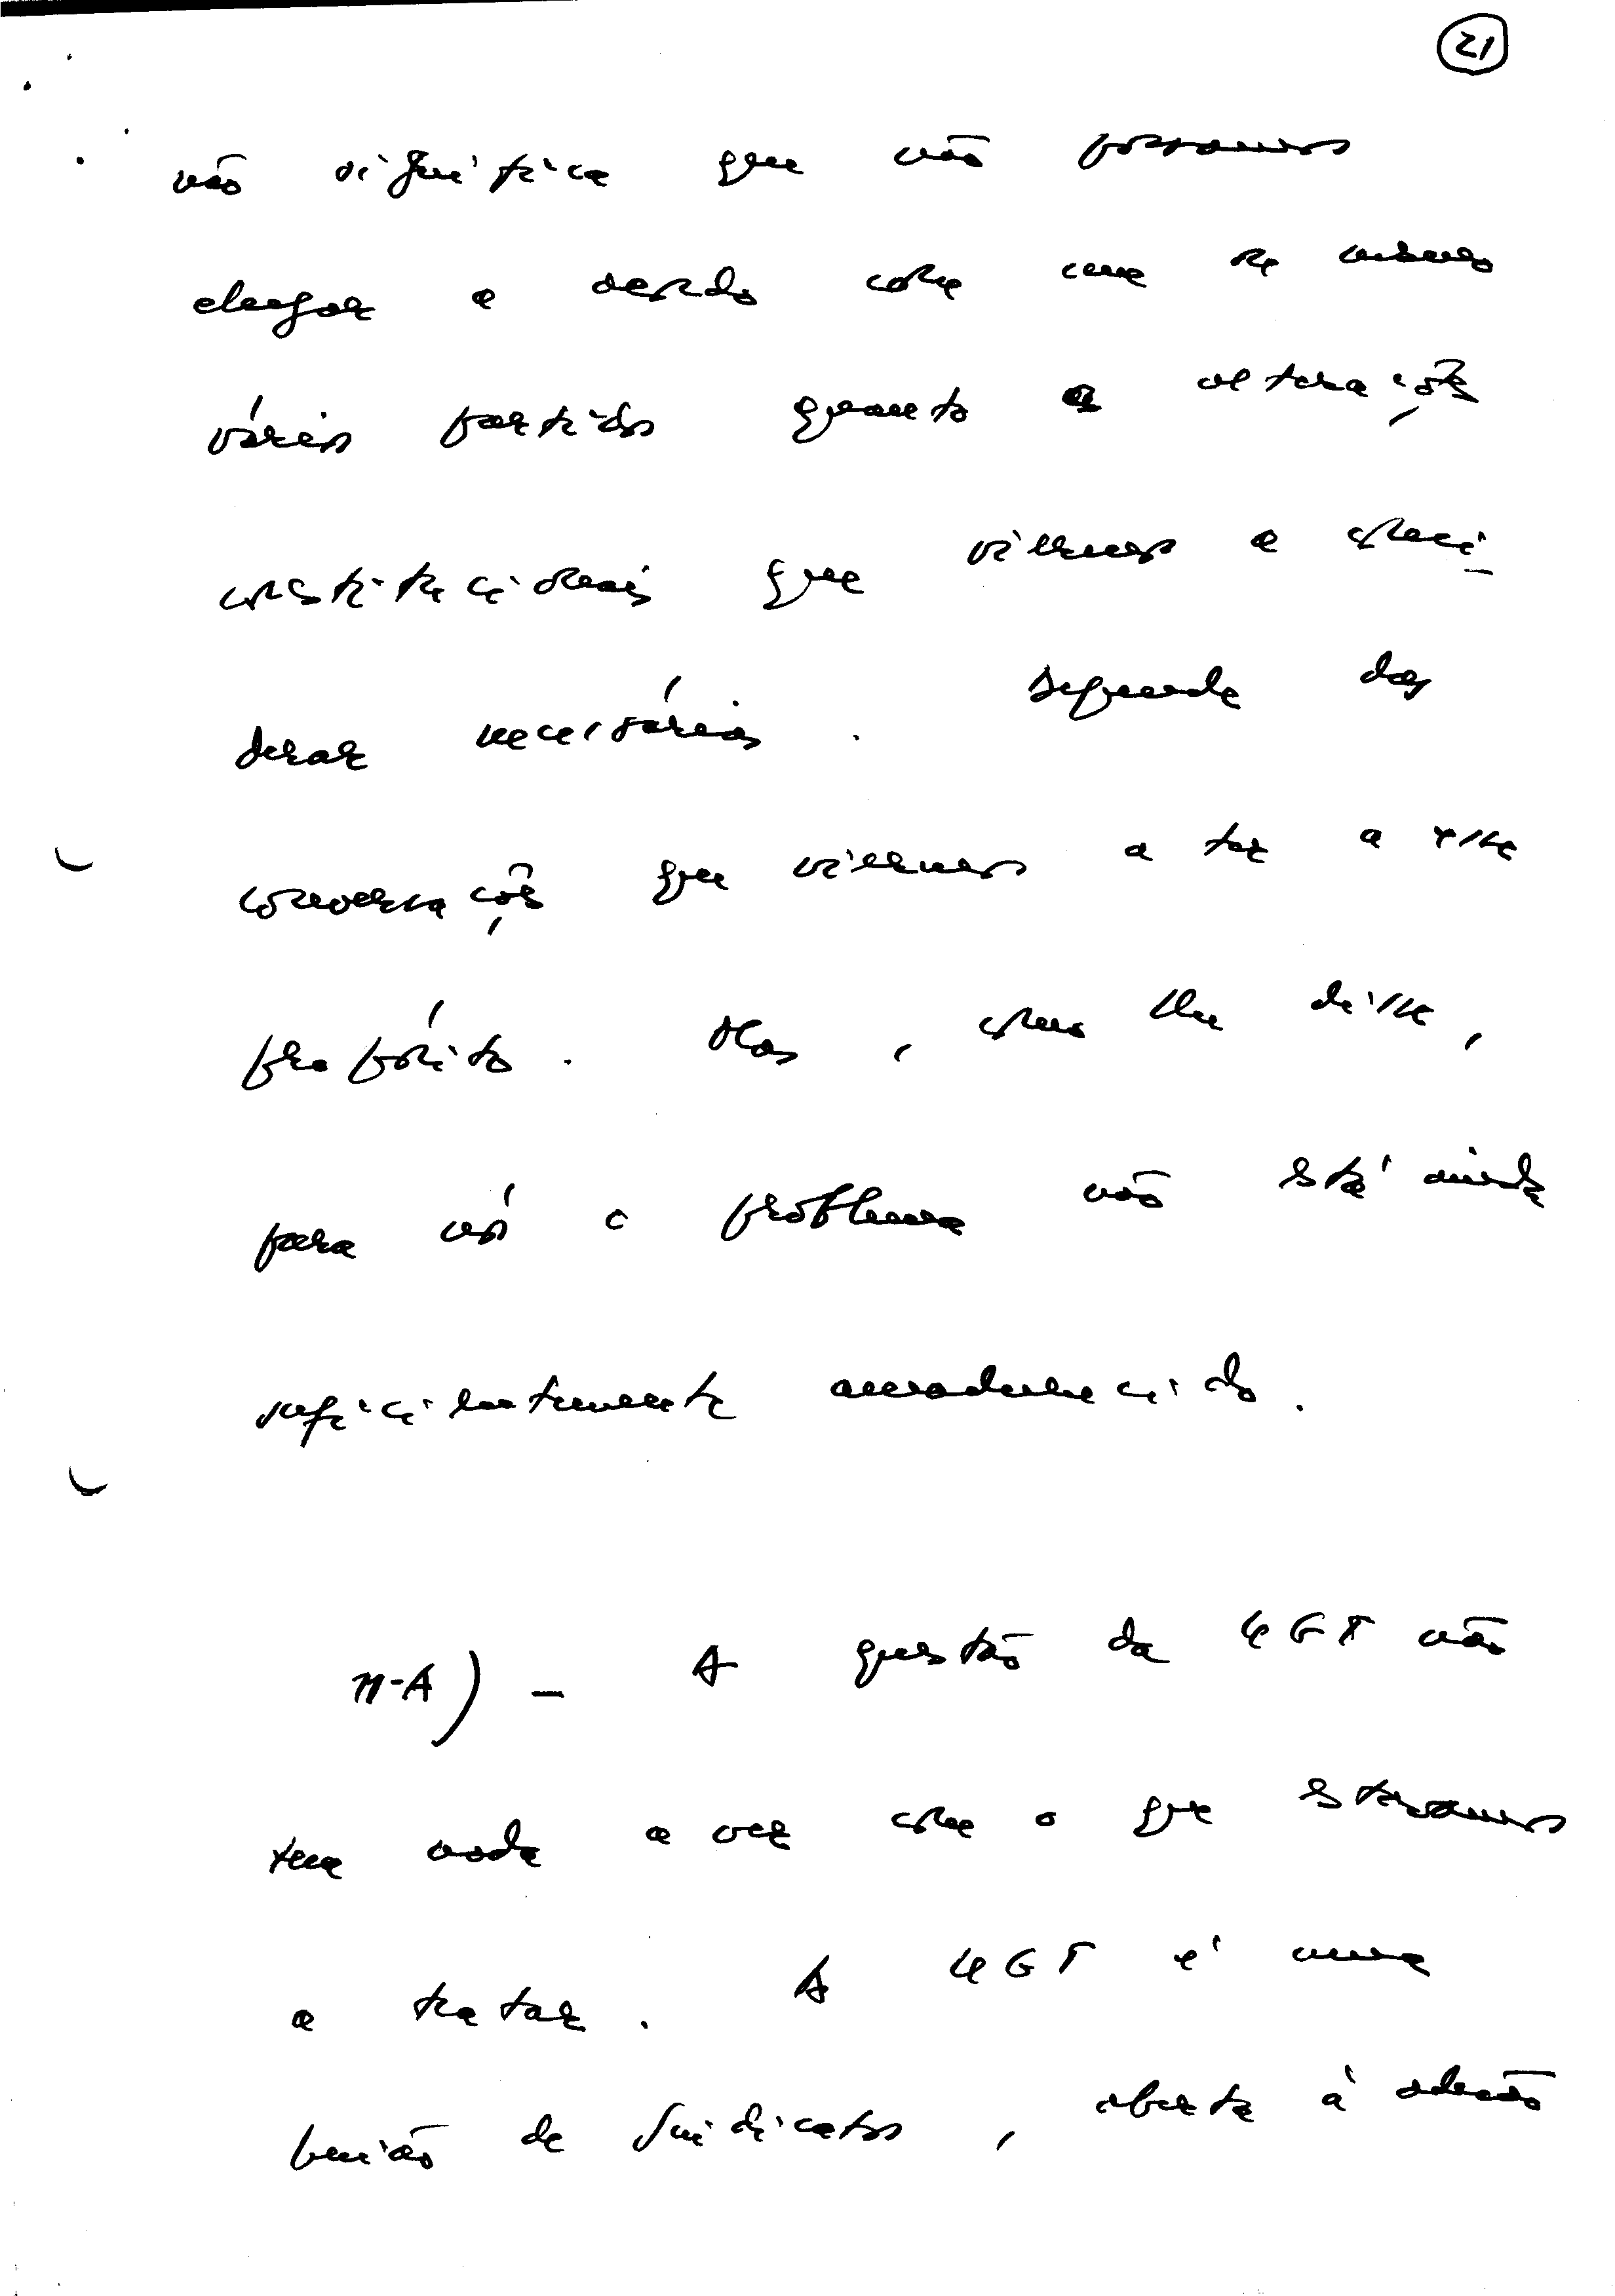 21
não significa que não possamos
chegar a acordo com
vários partidos quanto a alterações
constitucionais que viermos a consi-
derar necessárias. Depende das
conversações que viermos a ter a esse
propósito. Mas, como lhe disse,
para nós o problema não está ainda
suficientemente amadurecido.
n-A) - A questão da UGT não
tem nada a ver com o que estávamos
a tratar. A UGT é uma
união de Sindicatos, aberta à adesão